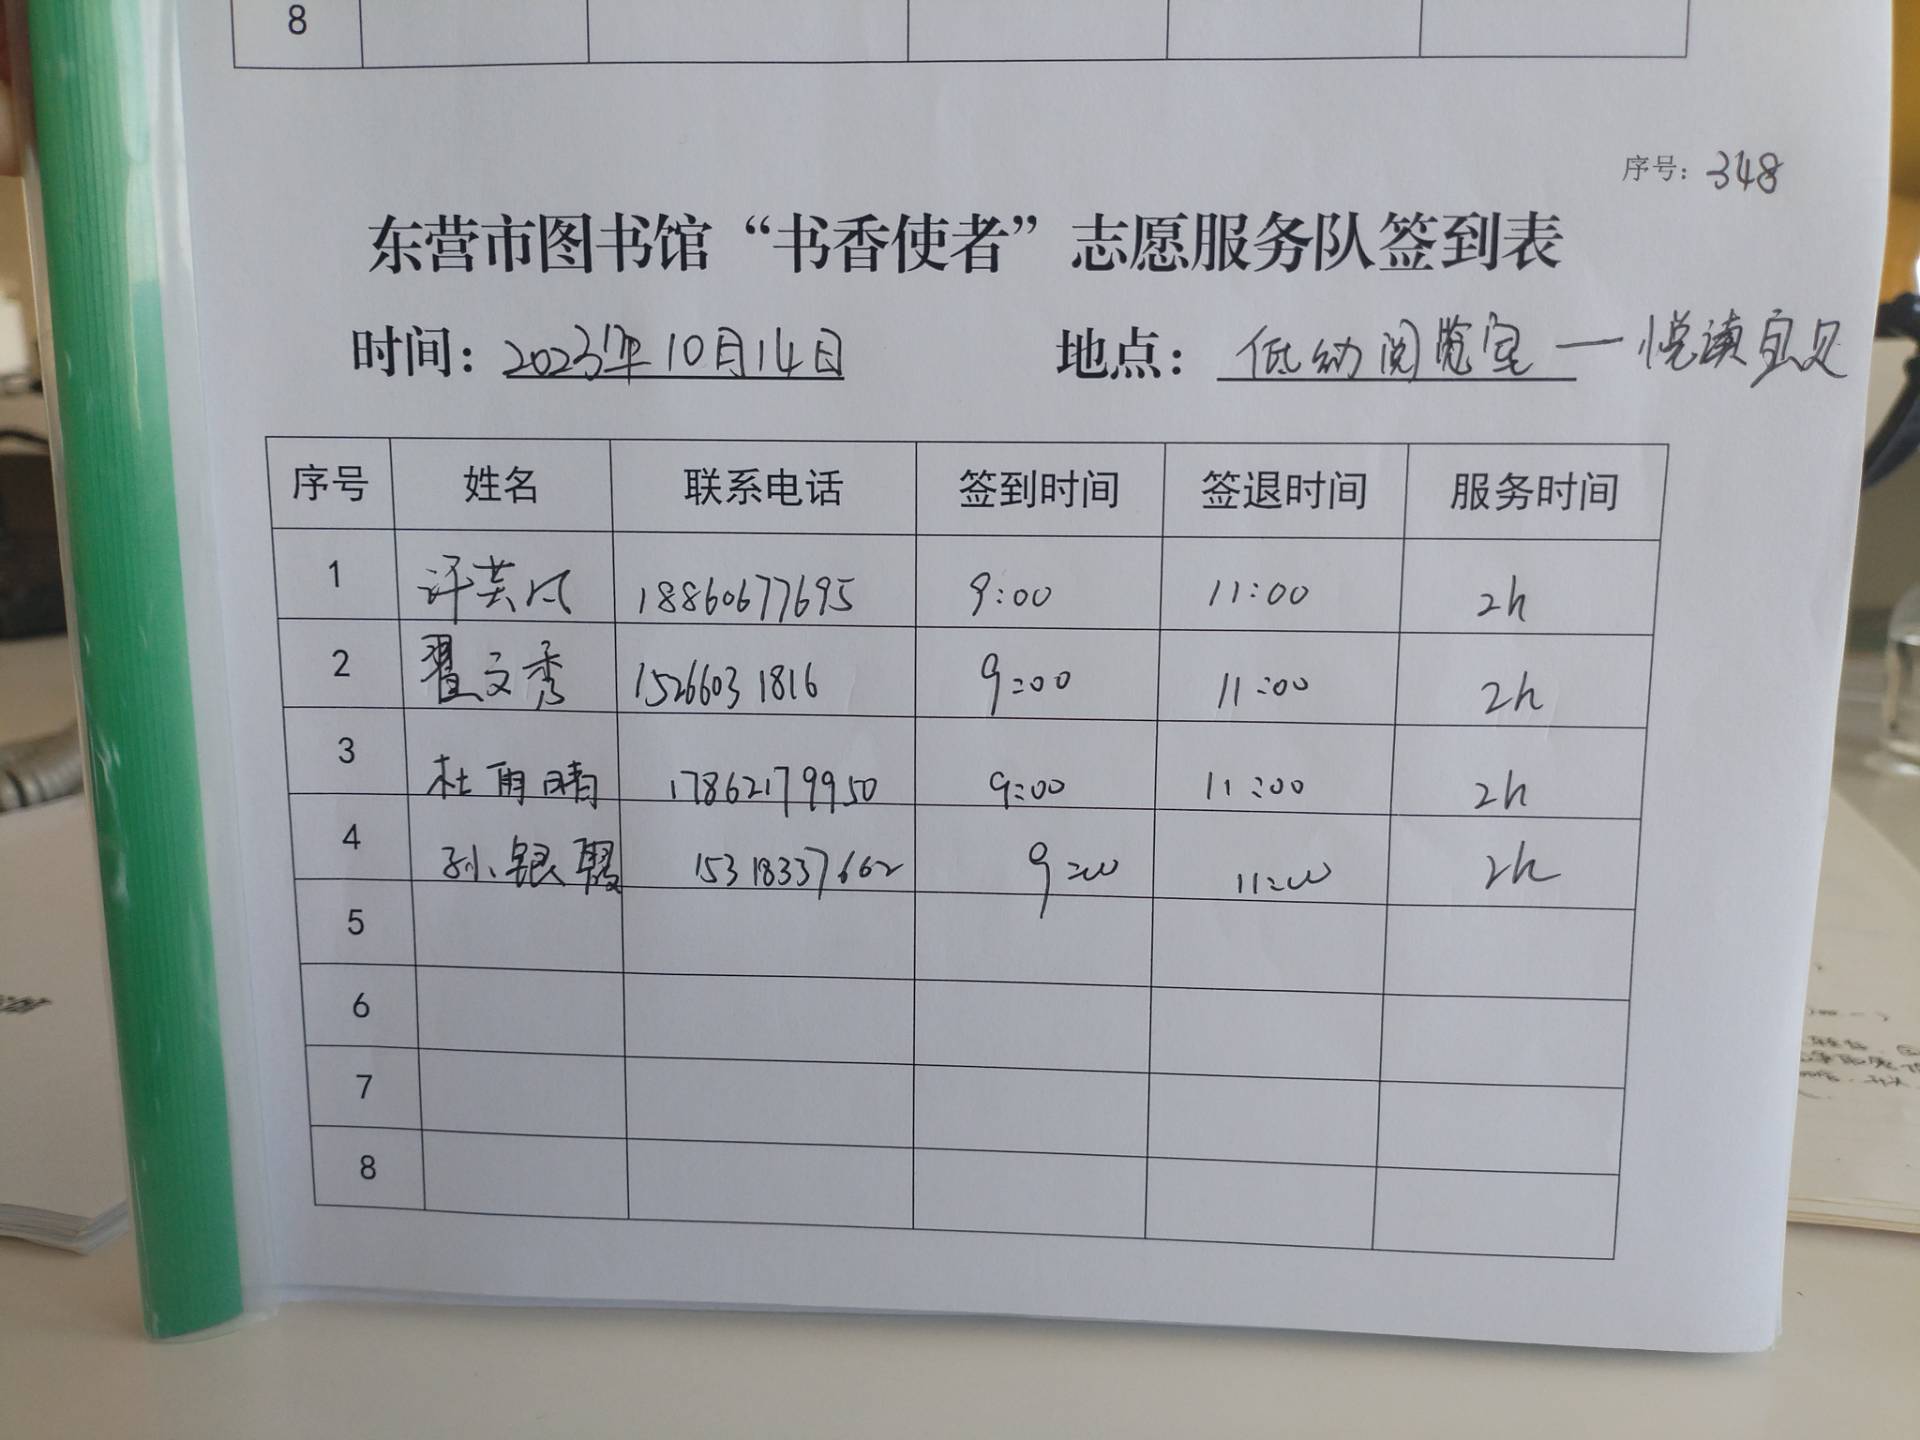 8
序号：348
东营市图书馆“书香使者”志愿服务队签到表
时间：2023年10月14日 地点：低幼阅览室—悦读宜贝
序号 姓名 联系电话 签到时间 签退时间 服务时间
1 许芸风 18860677695 9:00 11:00 2h
2 翟文秀 15266031816 9:00 11:00 2h
3 杜雨晴 17862179950 9:00 11:00 2h
4 孙银 15318337662 9:00 11:00 2h
5
6
7
8